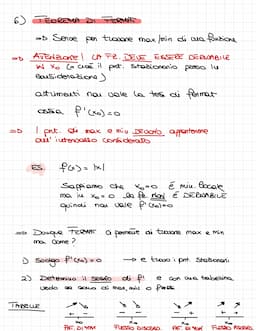 6) TEOREMA DI FERMAT
=> Serve per trovare max/min di una funzione
=> ATTENZIONE! LA FZ. DEVE ESSERE DERIVABILE
IN x₀ (= cioè il pnt. stazionario preso in
considerazione)
altrimenti non vale la tesi di fermat
ossia f'(x₀)=0
=> I pnt. di max e min DEVONO appartenere
all'intervallo considerato
ES. f(x)= |x|
Sappiamo che x₀=0 È min. locale
ma in x₀=0 la fz NON È DERIVABILE
quindi non vale f'(x₀)=0
=> Dunque FERMAT ci permette di trovare max e min
ma come?
1) Svolgo f'(x₀)=0 → e trovo i pnt. stazionari
2) Determino il segno di f' e con una tabellina
vedo se sono di max, min o flesso
TABELLE
PNT. DI MAX FLESSO DISCEND. PNT. DI MIN FLESSO ASCEND.